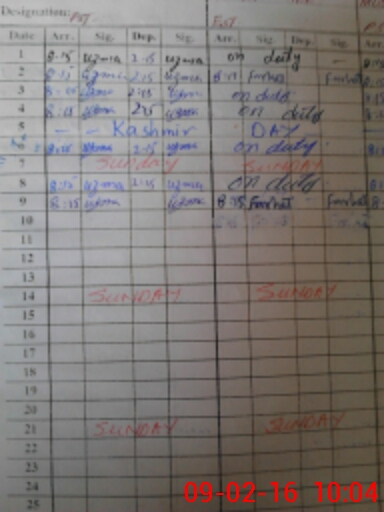 Designation: PST EST
Date Arr. Sig. Dep. Sig. Arr. Sig. Dep. Sig. Arr.
1 8:15 uzma 2:15 uzma on duty —
2 8:15 uzma 2:15 uzma
3 2:15 uzma on duty
4 8:15 uzma 2:15 uzma on duty
5 — — Kashmir DAY
6 8:15 uzma 2:15 uzma on duty
7 Sunday SUNDAY
8 8:15 uzma 2:15 uzma on duty
9 8:15 uzma uzma 8:15 Farhat Farhat
10
11
12
13
14 SUNDAY SUNDAY
15
16
17
18
19
20
21 SUNDAY SUNDAY
22
23
24
25
09-02-16 10:04